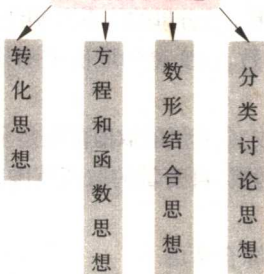 转化思想
方程和函数思想
数形结合思想
分类讨论思想